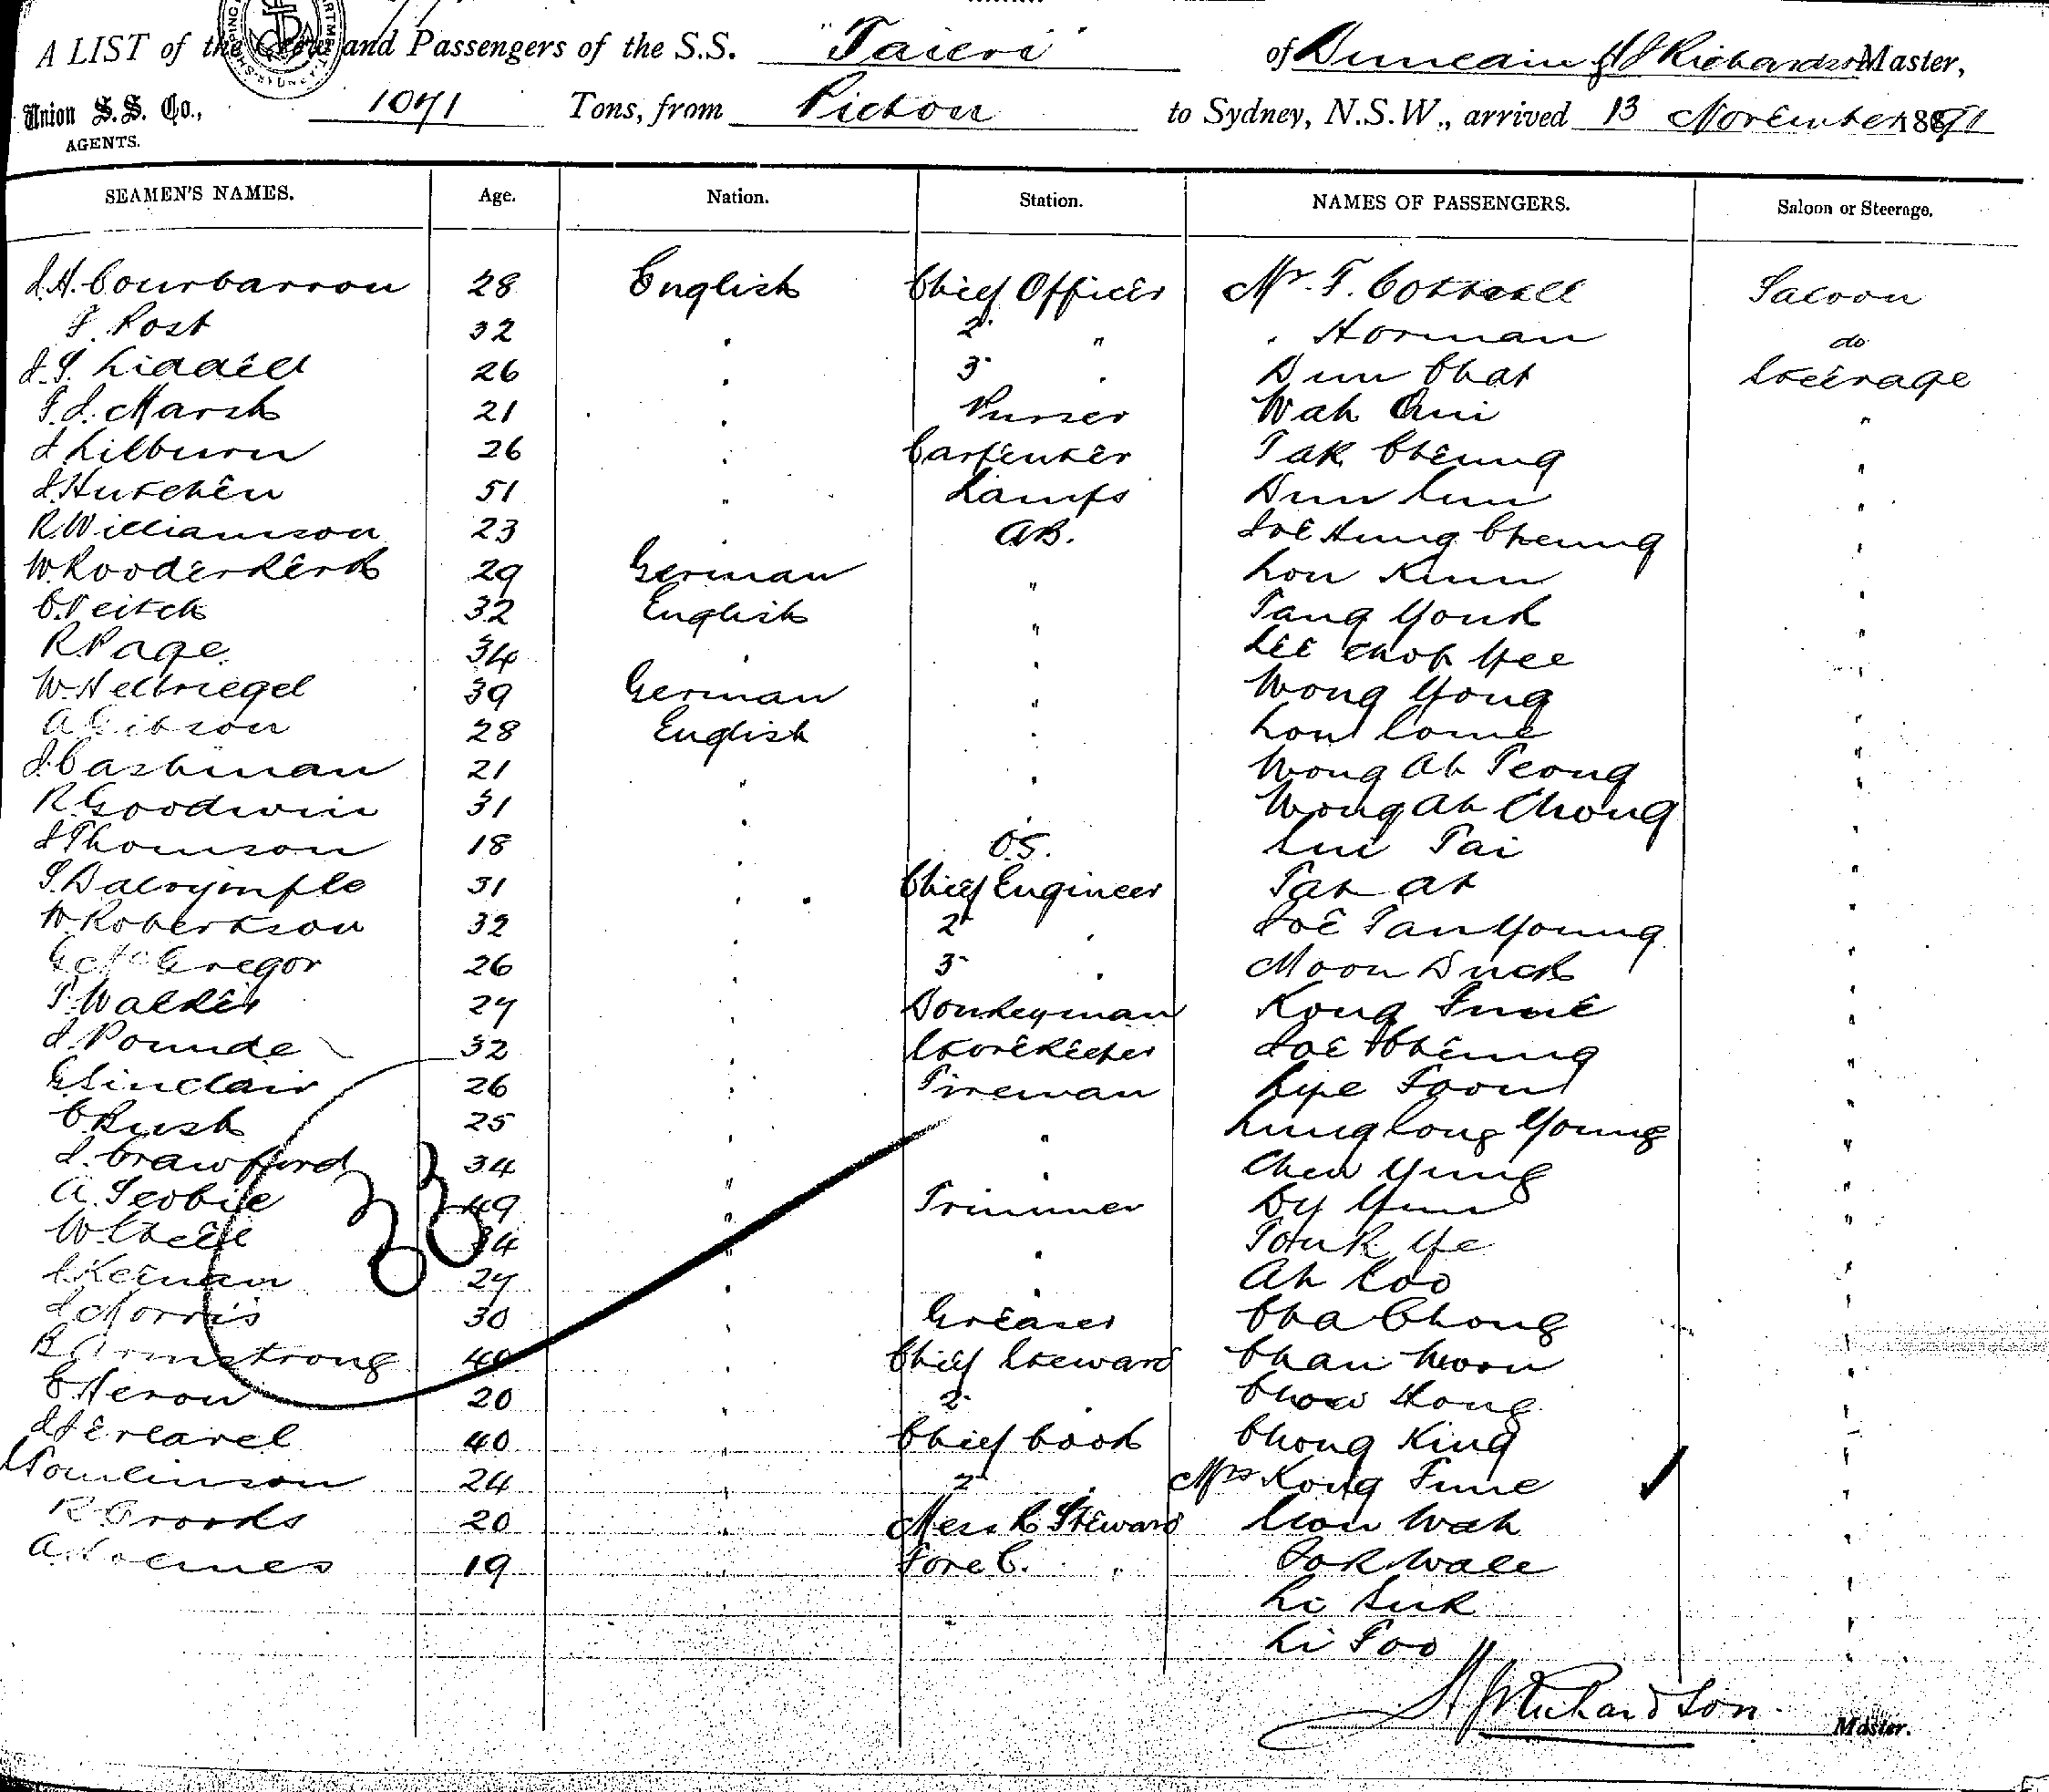 A LIST of the Crew and Passengers of the S.S. "Taieri" of Dunedin Richardson Master,
Union S.S. Co., 1071 Tons, from Picton to Sydney, N.S.W., arrived 13 November 1891
AGENTS.
SEAMEN'S NAMES. Age. Nation. Station. NAMES OF PASSENGERS. Saloon or Steerage.
28 English Chief Officer Mr. F. Cottrell Saloon
F. Post 32 " 2 " " Horman do
Liddell 26 " 3 " Dun Chat Steerage
F.J. Marsh 21 " Purser Wah "
J Lilburn 26 " Carpenter Tak Cheung "
J Hutchen 51 " Lamps Dun Sun "
R. Williamson 23 " AB. Joe Hung Cheung "
W. Rooderkerk 29 German " Lou Kum "
C. Veitch 32 English " Tang "
R. Page 34 " " Lee Yee "
W. Hellriegel 39 German " Wong Yong "
A Gibson 28 English " Lou "
J. Cashman 21 " " Wong Ah Teong "
R. Goodwin 31 " " Wong Ah Chong "
J Thomson 18 " O.S. Sue Tai "
Dalrymple 31 " Chief Engineer "
W Robertson 32 " 2 " Joe Tan Young "
G McGregor 26 " 3 " Moon Duck "
T. Walker 27 " Donkeyman Kong Fune "
J. Pounde 32 " Storekeeper Joe Cheung "
G Sinclair 26 " Fireman Lype Foon "
C Rush 25 " " Lung Long Young "
J. Crawford 34 " " Chew Yung "
A. Scobie 49 " Trimmer "
W. Steele 34 " " "
Keenan 27 " " Ah Koo "
J Morris 30 " Greaser Cha Chong "
R Armstrong 40 " Chief Steward Chan Moon "
C. Heron 20 " 2 " Chow Hong "
40 " Chief Cook Chong King "
Tomlinson 24 " 2 " Mrs Kong Fune "
R Brooks 20 " Mess R. Steward Wah "
A. Holmes 19 " Fore C. " "
Li Suk "
Li Foo "
33
Richardson Master.